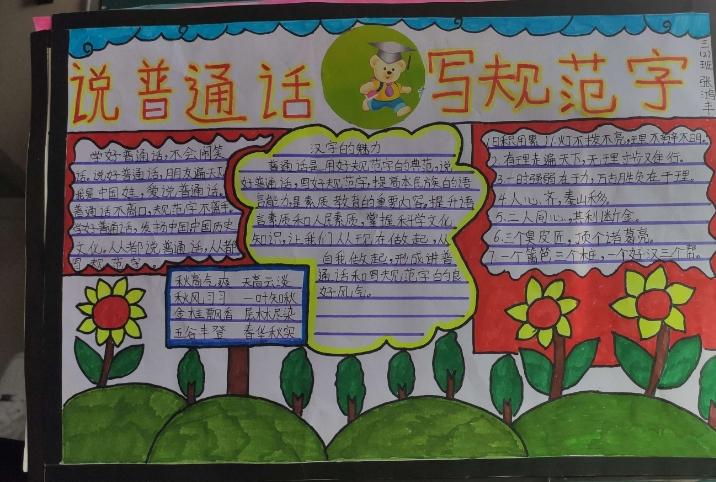 说普通话 写规范字
三(2)班 张鸿丰
学好普通话,不会闹笑
话,说好普通话,朋友遍天下
我是中国娃,爱说普通话,
普通话不离口,规范字不离手。
学好普通话,发扬中国历史
文化,人人都说普通话,人人都
写规范字
汉字的魅力
普通话是用好规范字的典范,说
好普通话,写好规范字,提高本民族的语
言能力是素质教育的重要内容,提升语
言素质和人民素质,掌握科学文化
知识,让我们从现在做起,从
自我做起,形成讲普
通话和写规范字的良
好风气。
秋高气爽 天高云淡
秋风习习 一叶知秋
金桂飘香 层林尽染
五谷丰登 春华秋实
日积月累 1.灯不拨不亮,理不辩不明。
2.有理走遍天下,无理寸步难行。
3.一时强弱在于力,万古胜负在于理。
4.人心齐,泰山移。
5.二人同心,其利断金。
6.三个臭皮匠,顶个诸葛亮。
7.一个篱笆三个桩,一个好汉三个帮。